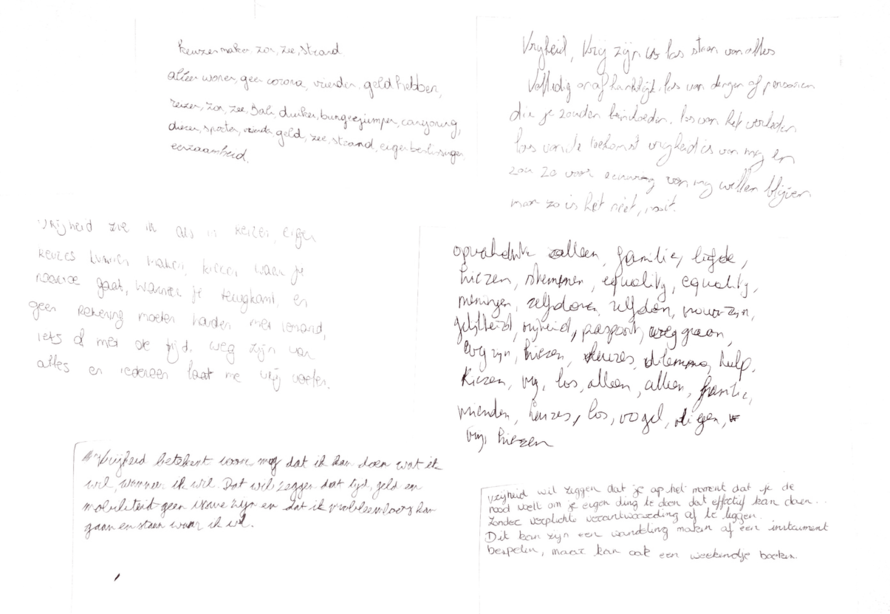 keuzes maken, zon, zee, strand
alleen wonen, geen corona, vrienden, geld hebben,
reizen, zon, zee, Bali, duiken, bungeejumpen, canyoning,
dieren, sporten, geld, zee, strand, eigen beslissingen
eenzaamheid.
Vrijheid, Vrij zijn is los staan van alles
Volledig onafhankelijk. los van dingen of personen
die je zouden beïnvloeden. los van het verleden
los van de toekomst vrijheid is van mij en
zou zo voor eeuwig van mij willen blijven
maar zo is het niet, nooit.
Vrijheid zie ik als in reizen, eigen
keuzes kunnen maken, kiezen waar je
naartoe gaat, wanneer je terugkomt, en
geen rekening moeten houden met iemand,
iets of met de tijd. weg zijn van
alles en iedereen laat me vrij voelen.
opvahdelijk alleen, familie, liefde,
kiezen, stemmen, equality, equality,
meningen, zelf doen, zelf doen, vrouw zijn,
gelijkheid, vrijheid, paspoort, weg gaan,
weg zijn, kiezen, keuzes, dilemma, help,
kiezen, vrij, los, alleen, alleen, familie,
vrienden, keuzes, los, vogel, vliegen,
vrij, kiezen
Vrijheid betekent voor mij dat ik kan doen wat ik
wil, wanneer ik wil. Dat wil zeggen dat tijd, geld en
mobiliteit geen issue zijn en dat ik probleemloos kan
gaan en staan waar ik wil.
vrijheid wil zeggen dat je op het moment dat je de
nood voelt om je eigen ding te doen dat effectief kan doen...
zonder verplichte verantwoording af te leggen.
Dit kan zijn een wandeling maken of een instrument
bespelen, maar kan ook een weekendje boeken.